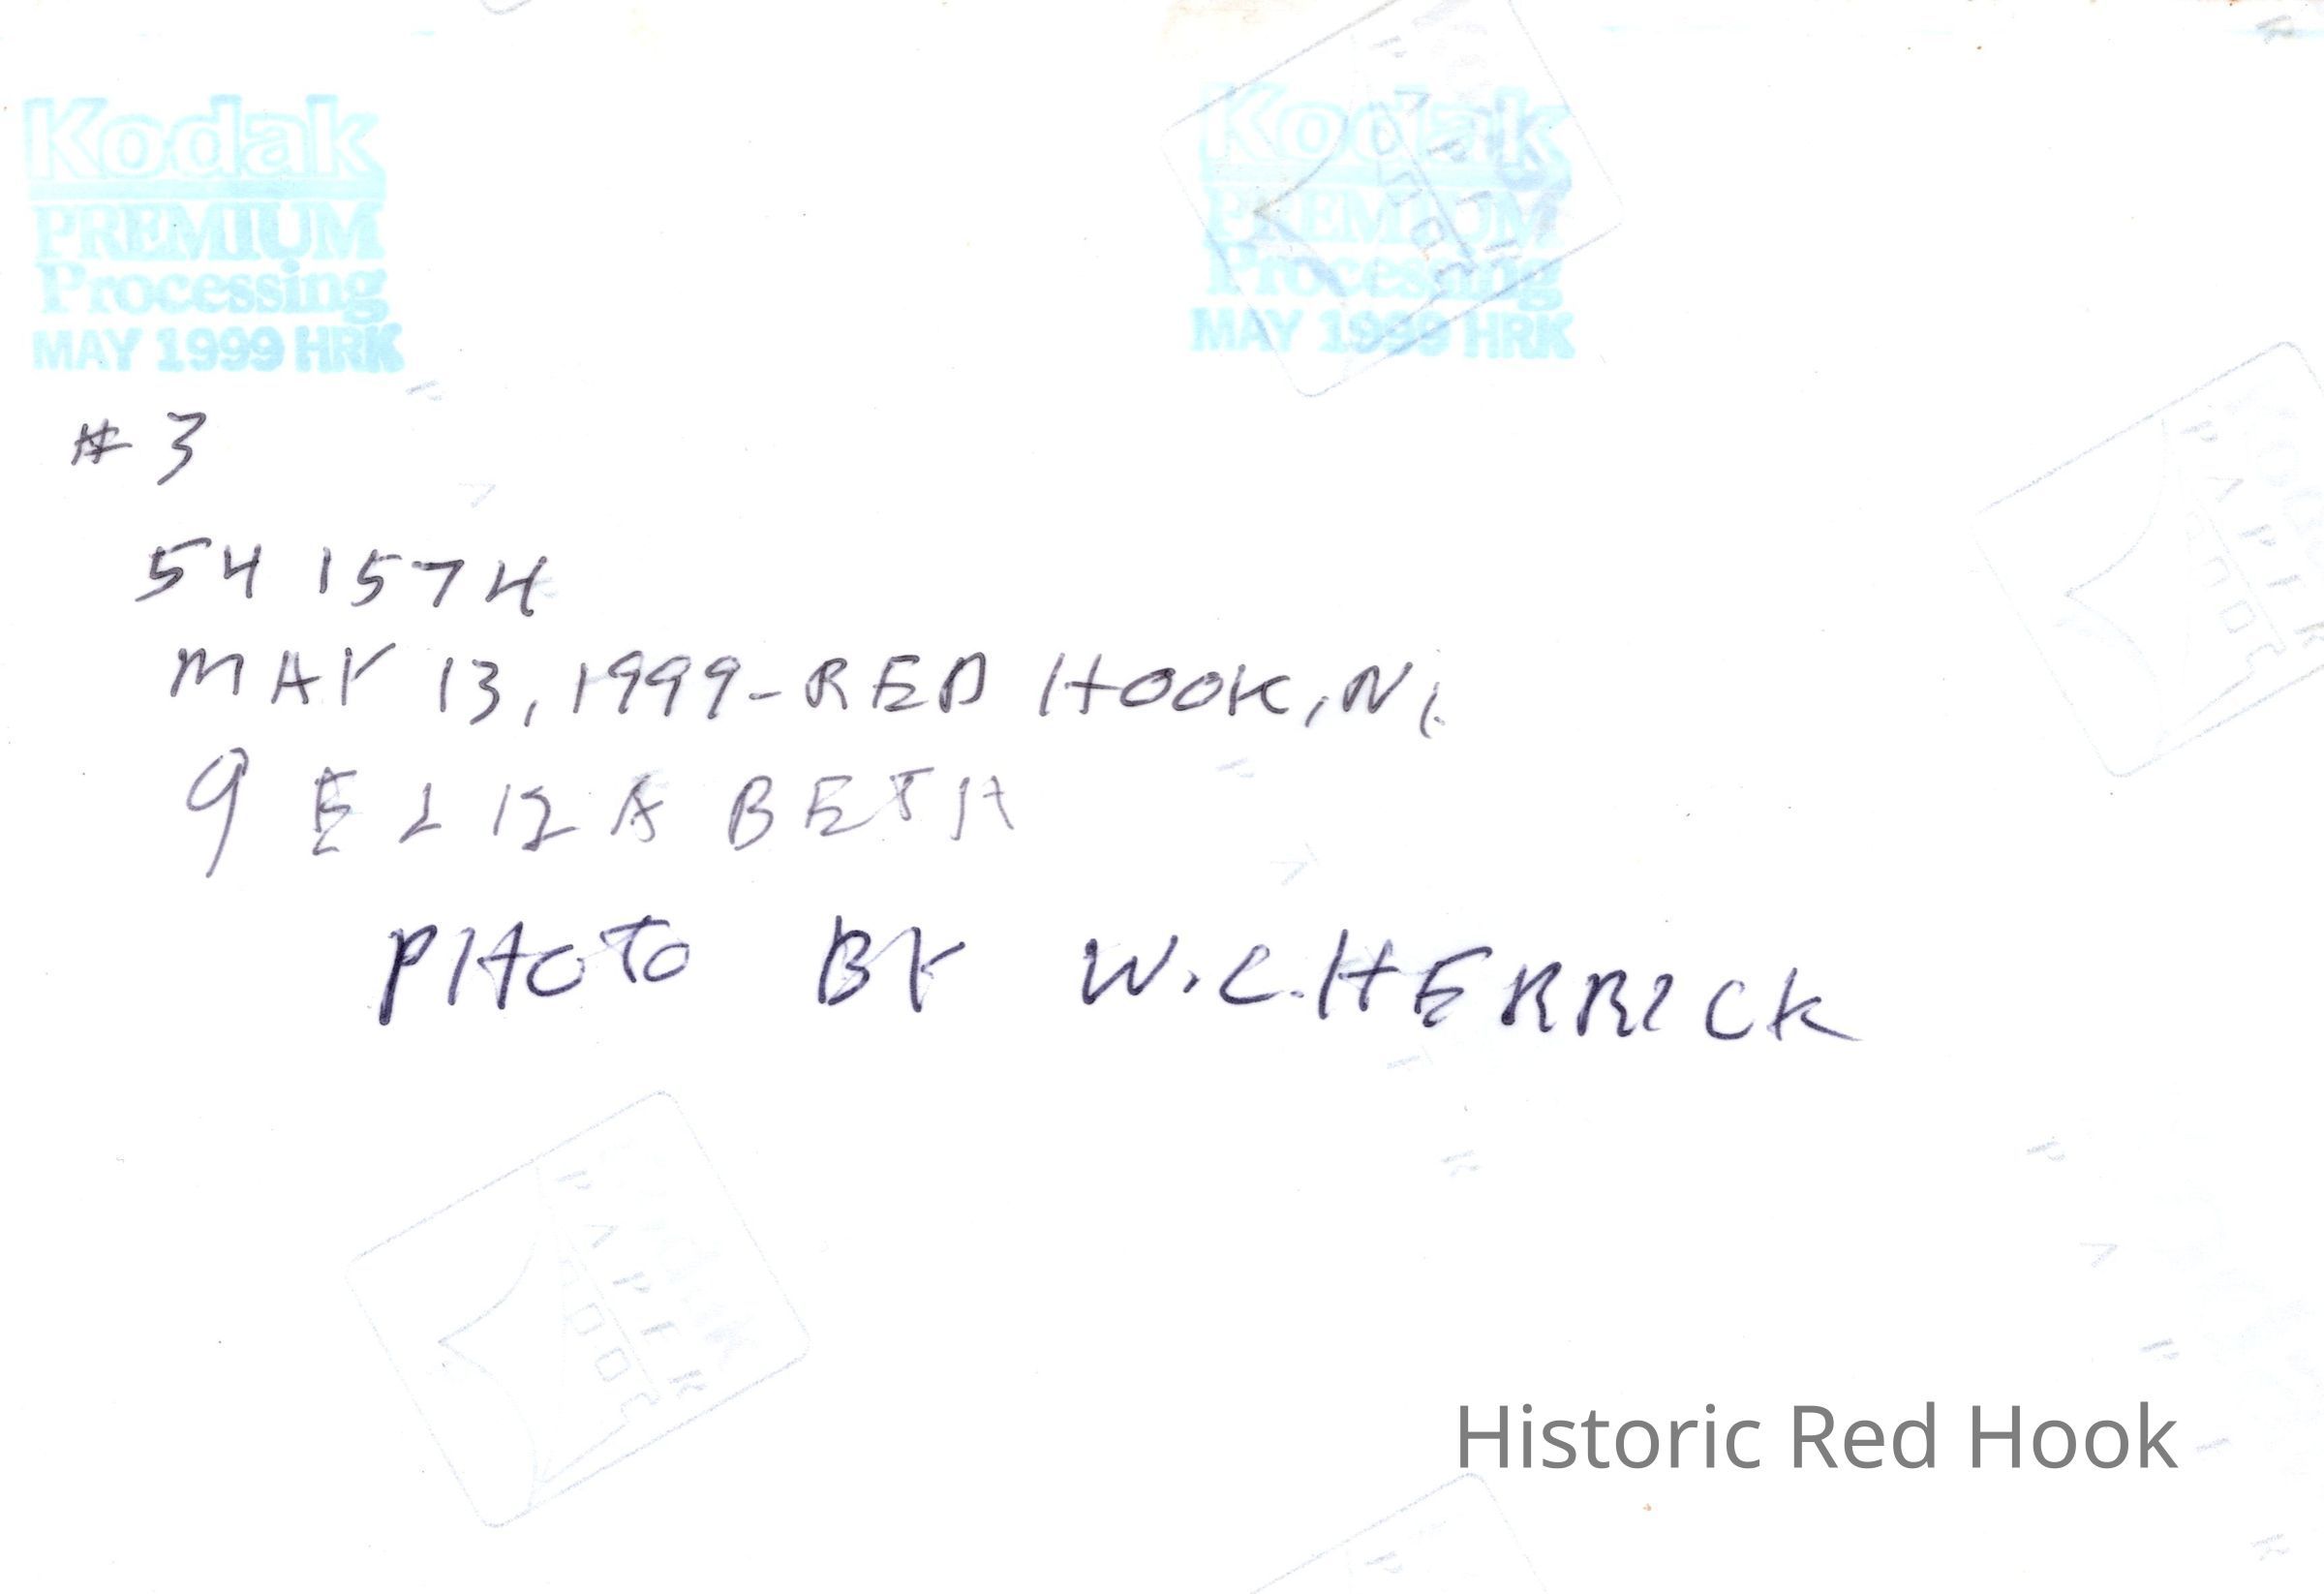 Kodak
PREMIUM
Processing
MAY 1999 HRK
Kodak
PREMIUM
Processing
MAY 1999 HRK
# 3
54 1574
MAY 13, 1999-RED HOOK, NY.
9 ELIZABETH
PHOTO BY W.C.HERRICK
KODAK
PAPER
KODAK
PAPER
KODAK
PAPER
Historic Red Hook